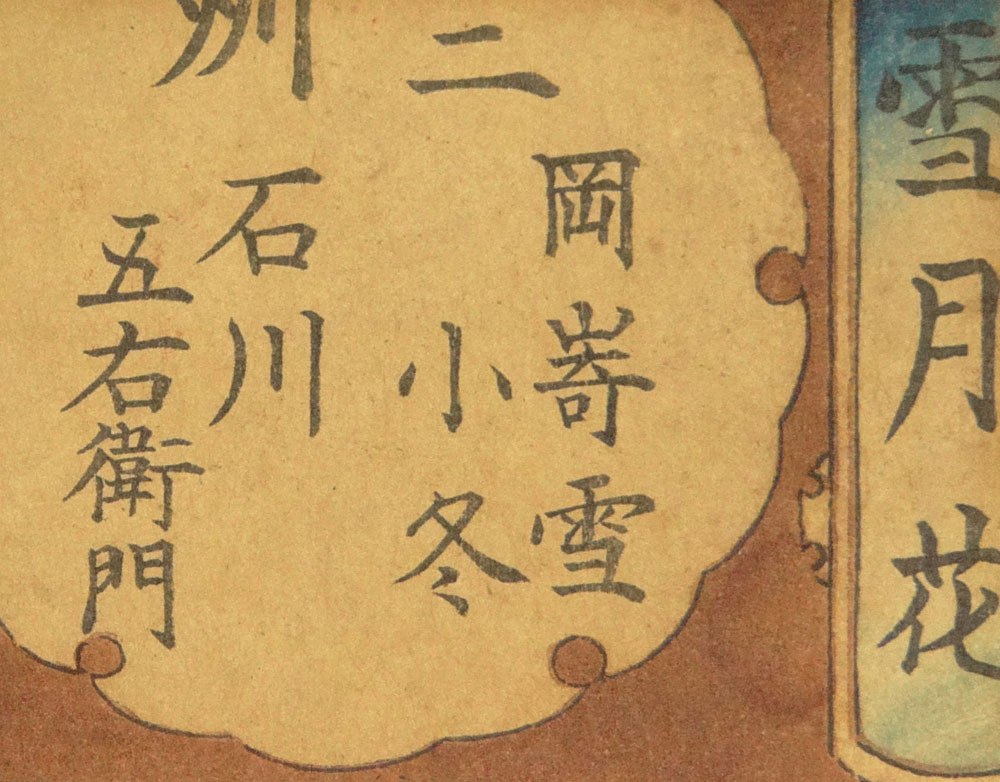 雪月花
岡嵜雪
二 小冬
州 石川
五右衛門